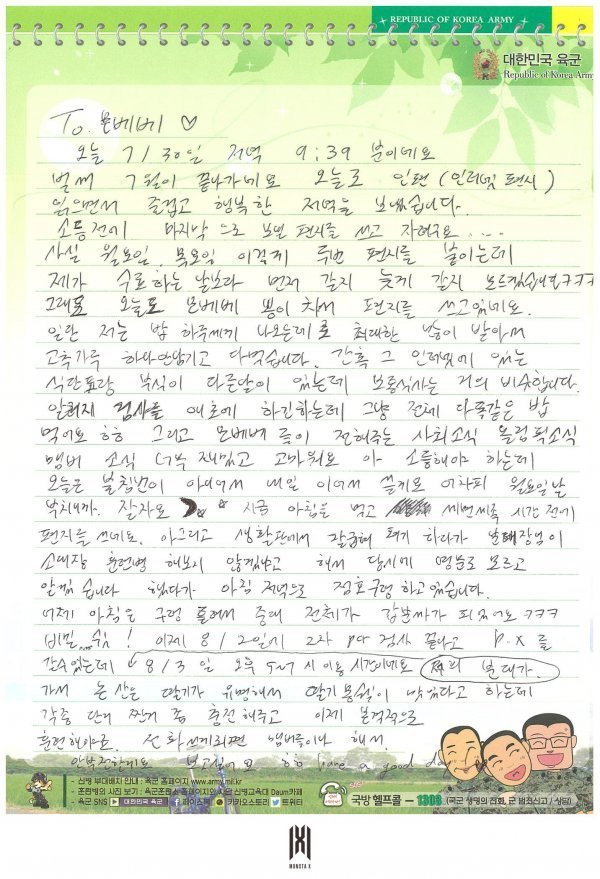 REPUBLIC OF KOREA ARMY
대한민국 육군
Republic of Korea Arm
To. 몬베베 ♡
오늘 7/30일 저녁 9:39 분이네요
벌써 7월이 끝나가네요 오늘도 인편 (인터넷 편지)
읽으면서 즐겁고 행복한 저녁을 보냈습니다.
소등전에 마지막 으로 보면 편지를 쓰고 자려구요....
사실 월요일, 목요일 이렇게 두번 편지를 붙이는데
제가 수료하는 날보다 먼저 갈지 늦게 갈지 모르겠습니다ㅋㅋㅋ
그래도 오늘도 몬베베 뽕이 차서 편지를 쓰고있네요.
일단 저는 밥 하루세끼 나오는데로 최대한 많이 받아서
고추가루 하나 안남기고 다먹습니다. 간혹 그 인터넷에 있는
식단표랑 부식이 다른날이 있는데 보통식사는 거의 비슷합니다.
알러지 검사를 애초에 하긴하는데 그냥 전체 다똑같은 밥
먹어요 ㅎㅎ 그리고 몬베베 들이 전해주는 사회소식 올림픽소식
멤버 소식 너무 재밌고 고마워요 아 소등해야 하는데
오늘은 불침번이 아니여서 내일 이어서 쓸게요 어차피 월요일날
부치니까. 잘자요 지금 아침을 먹고 세면세족 시간 전에
편지를 쓰네요. 아그리고 생활관에서 잘곳에 하다가 분대장님이
소대장 훈련병 해보지 않겠냐고 해서 당시에 명분도 모르고
알겠습니다 했다가 아침 저녁으로 점호구령 하고있습니다.
어제 아침은 구령 틀려서 중대 전체가 갑분싸가 되었어요 ㅋㅋㅋ
비밀..쉿! 이제 8/2일에 2차 PCR 검사 끝나고 P.X 를
갈수있는데 8/3 일 오후 5시 이용시간이네요 분대가
가서 논산은 딸기가 유명해서 딸기몽쉘이 맛있다고 하는데
각종 단거 짠거 좀 충전해주고 이제 본격적으로
훈련해야죠. 전화 쓰게되면 멤버들이랑 해서
안부전할게요 보고싶어요 ㅎㅎ have a good day
- 신병 부대배치 안내 : 육군 홈페이지 www.army.mil.kr
- 훈련병의 사진 보기 : 육군훈련소 홈페이지와 신병교육대 Daum카페
- 육군 SNS 대한민국 육군 페이스북 카카오스토리 트위터
국방 헬프콜 - 1303 (국군 생명의 전화, 군 범죄신고 / 상담)
MONSTA X